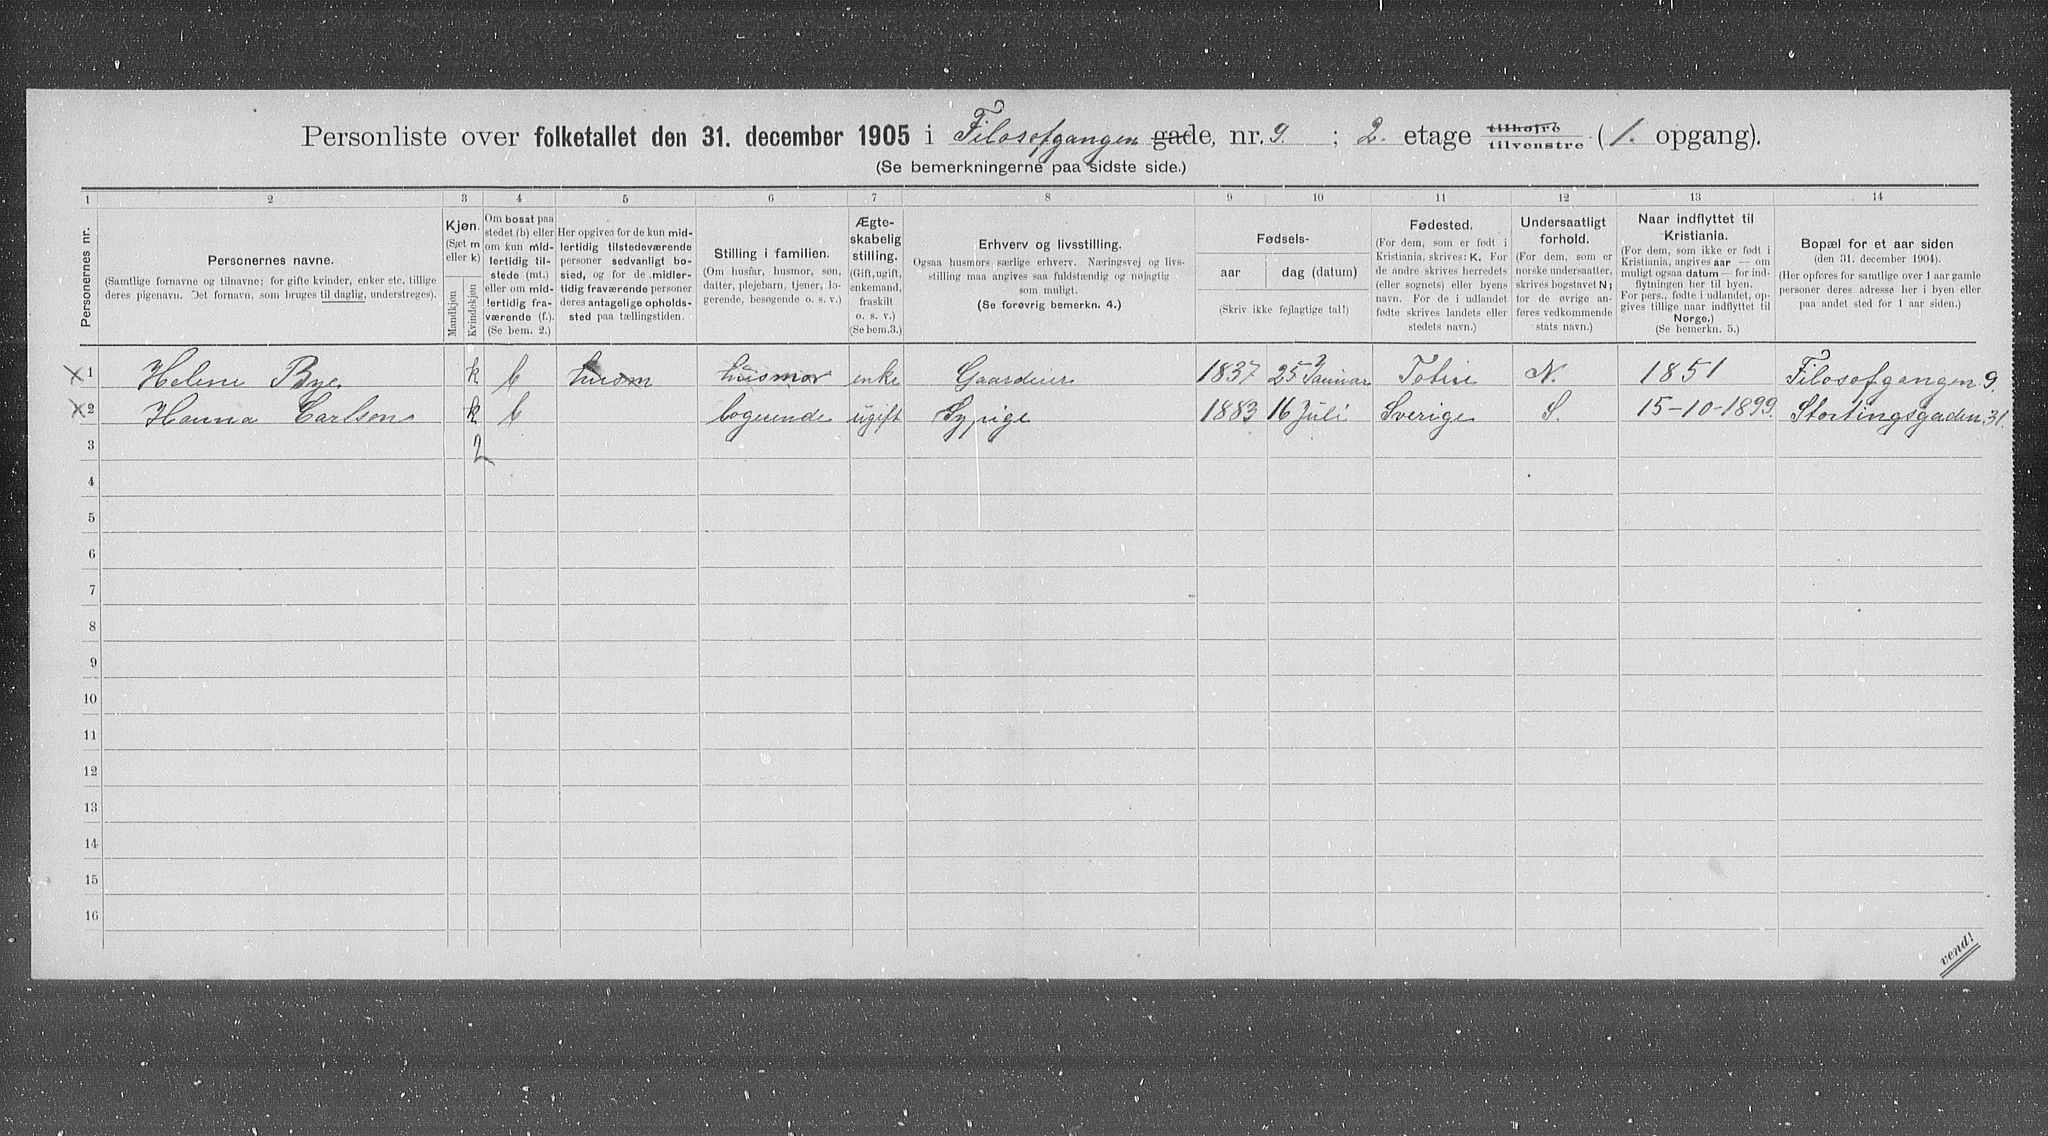 Personliste over folketallet den 31. december 1905 i Filosofgangen gade, nr. 9. ; 2. etage tilhøjre tilvenstre (1. opgang).
(Se bemerkningerne paa sidste side.)
1 2 3 4 5 6 7 8 9 10 11 12 13 14
Personernes nr.
Personernes navne.
(Samtlige fornavne og tilnavne; for gifte kvinder, enker etc. tillige
deres pigenavn. Det fornavn, som bruges til daglig, understreges).
Kjøn.
(Sæt m
eller k)
Mandkjøn
Kvindekjøn
Om bosat paa
stedet (b) eller
om kun mid-
lertidig til-
stede (mt.)
eller om mid-
lertidig fra-
værende (f.)
(Se bem. 2.)
Her opgives for de kun mid-
lertidig tilstedeværende
personer sedvanligt bo-
sted, og for de midler-
tidig fraværende personer
deres antagelige opholds-
sted paa tællingstiden.
Stilling i familien.
(Om husfar, husmor, søn,
datter, plejebarn, tjener, lo-
gerende, besøgende o. s. v.)
Ægte-
skabelig
stilling.
(Gift, ugift,
enkemand,
fraskilt
o. s. v.)
(Se bem.3.)
Erhverv og livsstilling.
Ogsaa husmors særlige erhverv. Næringsvej og livs-
stilling maa angives saa fuldstændig og nøjagtig
som muligt.
(Se forøvrig bemerkn. 4.)
Fødsels-
aar
dag (datum)
(Skriv ikke fejlagtige tal!)
Fødested.
(For dem, som er født i
Kristiania, skrives: K. For
de andre skrives herredets
(eller sognets) eller byens
navn. For de i udlandet
fødte skrives landets eller
stedets navn.)
Undersaatligt
forhold.
(For dem, som er
norske undersaatter,
skrives bogstavet N;
for de øvrige an-
føres vedkommende
stats navn.)
Naar indflyttet til
Kristiania.
(For dem, som ikke er født i
Kristiania, angives aar — om
muligt ogsaa datum — for ind-
flytningen her til byen.
For pers., fødte i udlandet, op-
gives tillige naar indflyttet til
Norge.)
(Se bemerkn. 5.)
Bopæl for et aar siden
(den 31. december 1904).
(Her opføres for samtlige over 1 aar gamle
personer deres adresse her i byen eller
paa andet sted for 1 aar siden.)
x 1 Helene Bye k b husm husmor enke Gaardeier 1837 25 Januar N. 1851 Filosofgangen 9.
x 2 Hanna Carlson k b logerende ugift Sypige 1883 16 Juli Sverige S. 15-10-1899. Stortingsgaden 31.
3 2
4
5
6
7
8
9
10
11
12
13
14
15
16
vend!